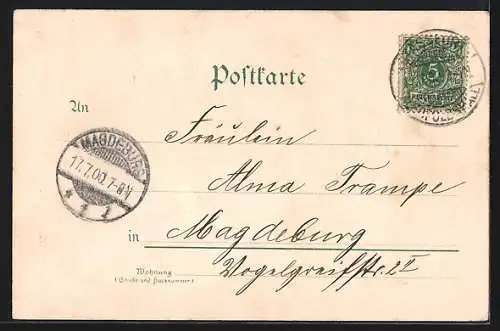 Postkarte
5
An
Fräulein
MAGDEBURG
17.7.00. 7-8V
* 1 1
Alma Trampe
in Magdeburg
Wohnung
(Straße und Hausnummer)
Vogelgreifstr. 2 II